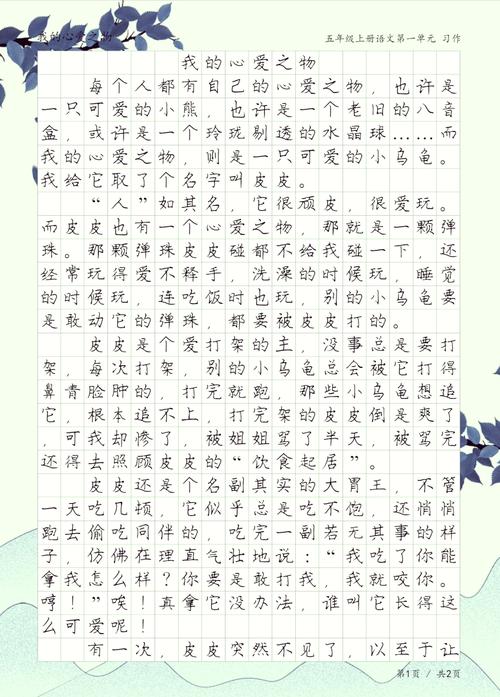 我的心爱之物
五年级上册语文第一单元 习作
我的心爱之物
每个人都有自己的心爱之物，也许是
一只可爱的小熊，也许是一个老旧的八音
盒，或许是一个玲珑剔透的水晶球……而
我的心爱之物，则是一只可爱的小乌龟。
我给它取了个名字叫皮皮。
“人”如其名，它很顽皮，很爱玩。
而皮皮也有一个心爱之物，那就是一颗弹
珠。那颗弹珠皮皮碰都不给我碰一下，还
经常玩得爱不释手，洗澡的时候玩，睡觉
的时候玩，连吃饭时也玩，别的小乌龟要
是敢动它的弹珠，都要被皮皮打的。
皮皮是个爱打架的主，没事总是要打
架，每次打架，别的小乌龟总会被它打得
鼻青脸肿的，打完就跑，那些小乌龟想追
它，根本追不上，打完架的皮皮倒是爽了
，可我却惨了，被姐姐骂了半天，被骂完
还得去照顾皮皮的“饮食起居”。
皮皮还是个名副其实的大胃王，不管
一天吃几顿，它似乎总是吃不饱，还悄悄
跑去偷吃同伴的，吃完一副若无其事的样
子，仿佛在理直气壮地说：“我吃了你能
拿我怎么样？你要是敢打我，我就咬你。
哼！”唉！真拿它没办法，谁叫它长得这
么可爱呢！
有一次，皮皮突然不见了，以至于让
第1页 / 共2页